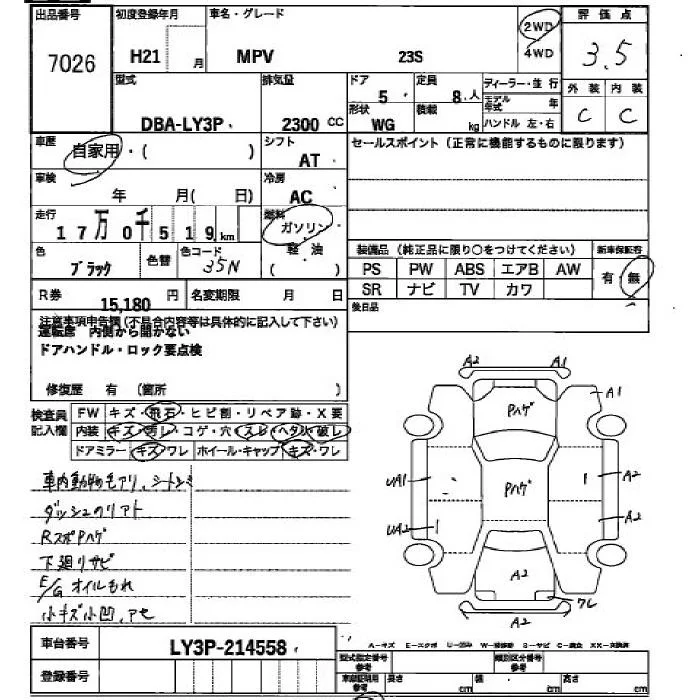 出品番号 初度登録年月 車名・グレード 2WD 4WD 評価点
7026 H21 月 MPV 23S 3.5
型式 排気量 ドア 5 定員 8.人 ディーラー・並 行 外装 内装
形状 積載 モデル年式 年
DBA-LY3P 2300 CC WG kg ハンドル 左・右 C C
車歴 自家用・( ) シフト AT セールスポイント(正常に機能するものに限ります)
車検 年 月( 日) 冷房 AC
走行 17万0千519km 燃料 ガソリン・軽・油 ( )
色 ブラック 色替 色コード 35N 装備品(純正品に限り○をつけてください) 新車保証書
PS PW ABS エアB AW 有・無
R券 15,180 円 名変期限 月 日 SR ナビ TV カワ
後日品
注意事項申告欄(不具合内容等は具体的に記入して下さい)
運転席 内側から開かない
ドアハンドル・ロック要点検
修復歴 有 (箇所 )
検査員記入欄 FW キズ・飛石・ヒビ割・リペア跡・X要
内装 キズ・汚レ・コゲ・穴・スレ・ヘタリ・破レ
ドアミラー キズ・ワレ ホイール・キャップ キズ・ワレ
車内動物毛アリ、シートシミ
ダッシュのリアト
RスポPハゲ
下廻りサビ
E/G オイルもれ
小キズ小凹、アセ
A2 A1
Pハゲ A1
UA1 Pハゲ A2
UA2 A2
A2 ワレ
A2
車台番号 LY3P-214558
登録番号 型式指定番号 参考 類別区分番号 参考
参考 長さ cm 幅 cm 高さ cm